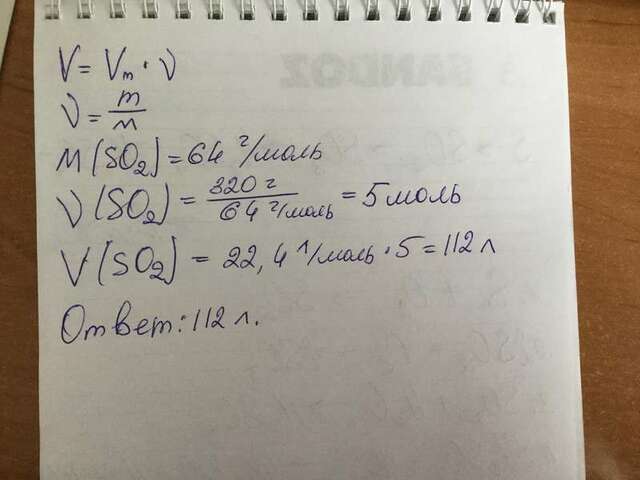 V = Vm · ν
ν = m/M
M(SO2) = 64 г/моль
ν(SO2) = 320 г / 64 г/моль = 5 моль
V(SO2) = 22,4 л/моль · 5 = 112 л
Ответ: 112 л.
SANDOZ